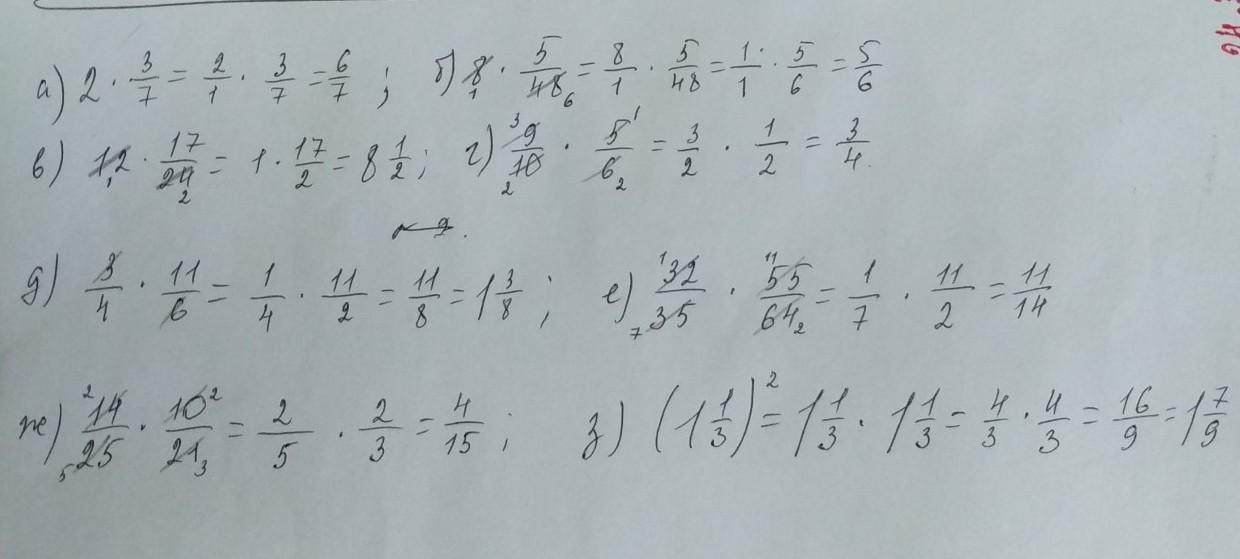 а) 2 · 3/7 = 2/1 · 3/7 = 6/7 ; б) 8 1 · 5/48 6 = 8/1 · 5/48 = 1/1 · 5/6 = 5/6
в) 12 1 · 17/24 2 = 1 · 17/2 = 8 1/2 ; г) 3 9/10 2 · 5 1/6 2 = 3/2 · 1/2 = 3/4.
д) 3/4 · 11/6 = 1/4 · 11/2 = 11/8 = 1 3/8 ; е) 1 32/35 7 · 11 55/64 2 = 1/7 · 11/2 = 11/14
ж) 2 14/25 5 · 10 2/21 3 = 2/5 · 2/3 = 4/15 ; з) (1 1/3)² = 1 1/3 · 1 1/3 = 4/3 · 4/3 = 16/9 = 1 7/9